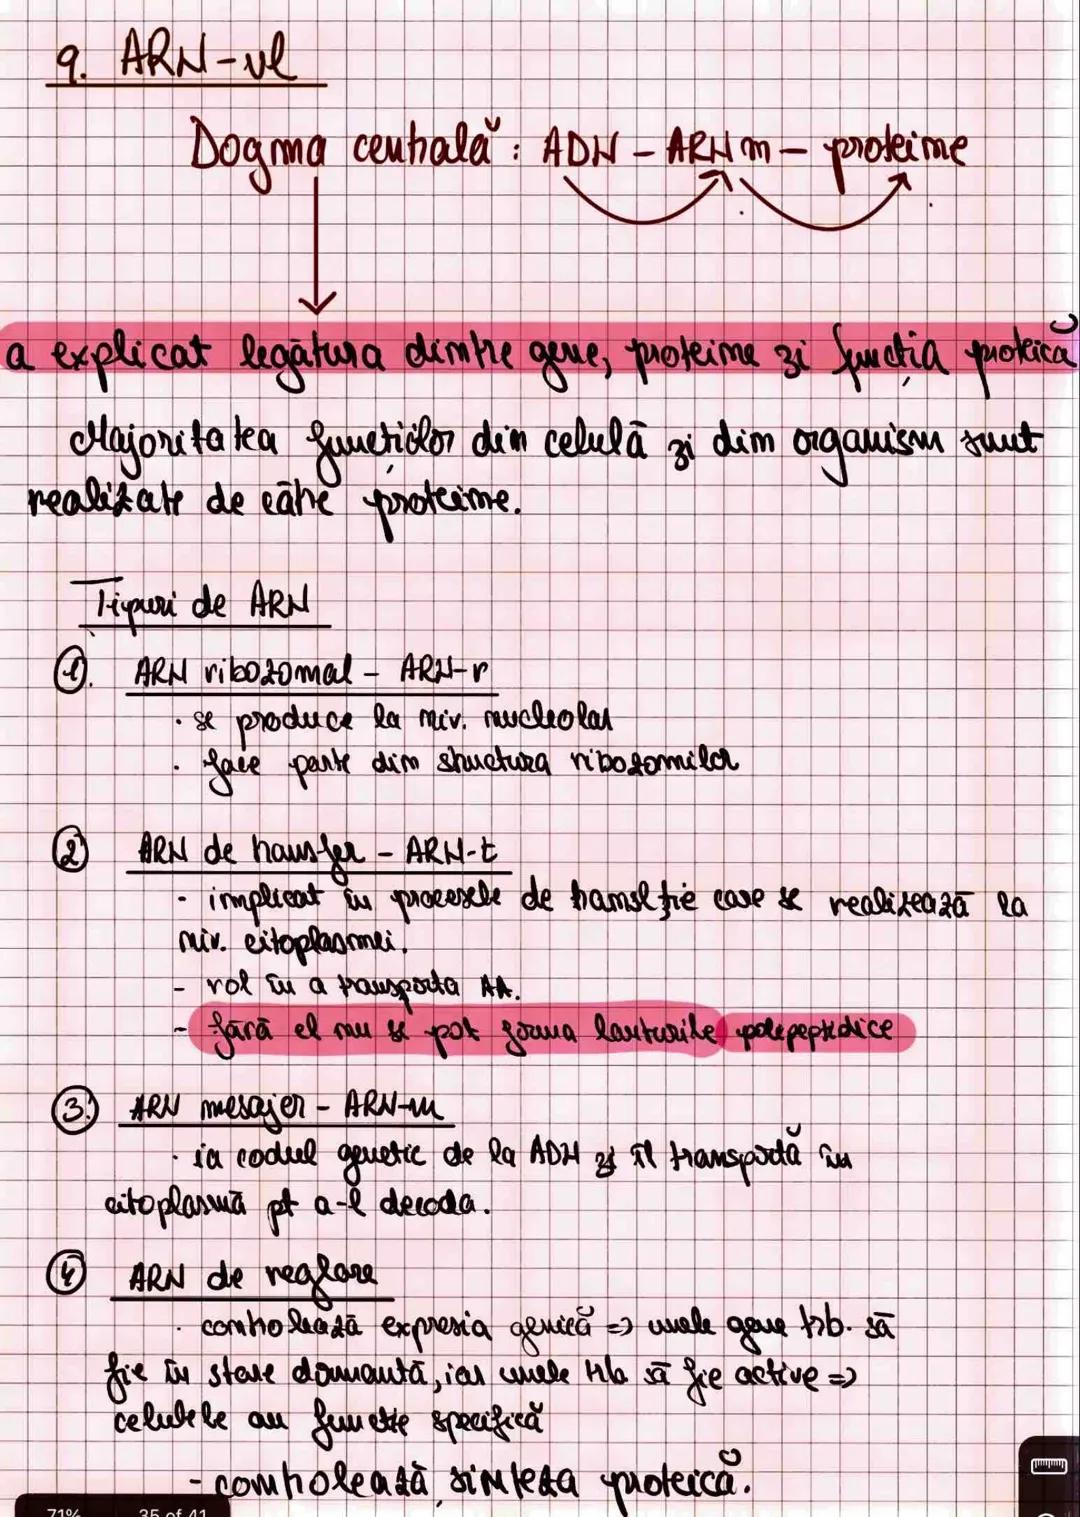 9. ARN-ul
Dogma centrală : ADN - ARNm - proteine
a explicat legătura dintre gene, proteine și funcția proteică
Majoritatea funcțiilor din celulă și din organism sunt
realizate de către proteine.
Tipuri de ARN
1. ARN ribozomal - ARN-r
· se produce la niv. nucleolar
· face parte din structura ribozomilor
2 ARN de transfer - ARN-t
- implicat în procesele de translție care se realizează la
niv. citoplasmei.
- rol în a transporta AA.
- fără el nu se pot forma lanturile polipeptidice
3. ARN mesajer - ARN-m
· ia codul genetic de la ADN și îl transportă în
citoplasmă pt a-l decoda.
4 ARN de reglare
· controlează expresia genică => unele gene trb. să
fie în stare dormantă, iar unele trb să fie active =>
celulele au funcție specifică
- controlează sinteza proteică.
71% 35 of 41